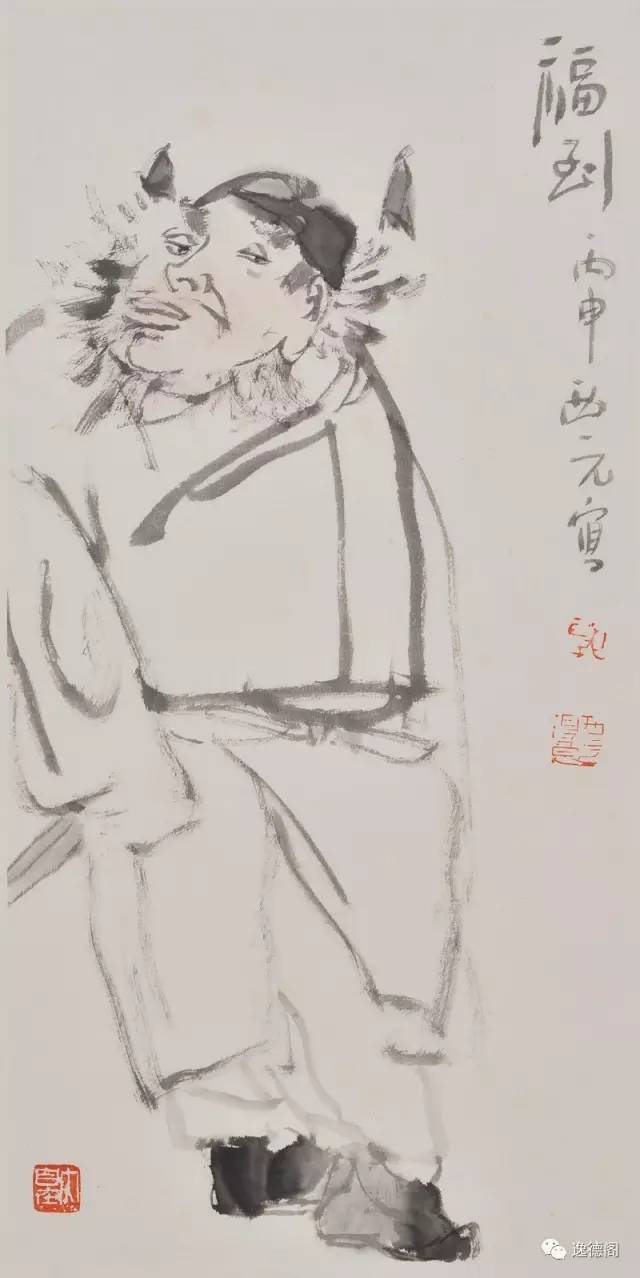 福到
丙申西元寫
逸德阁